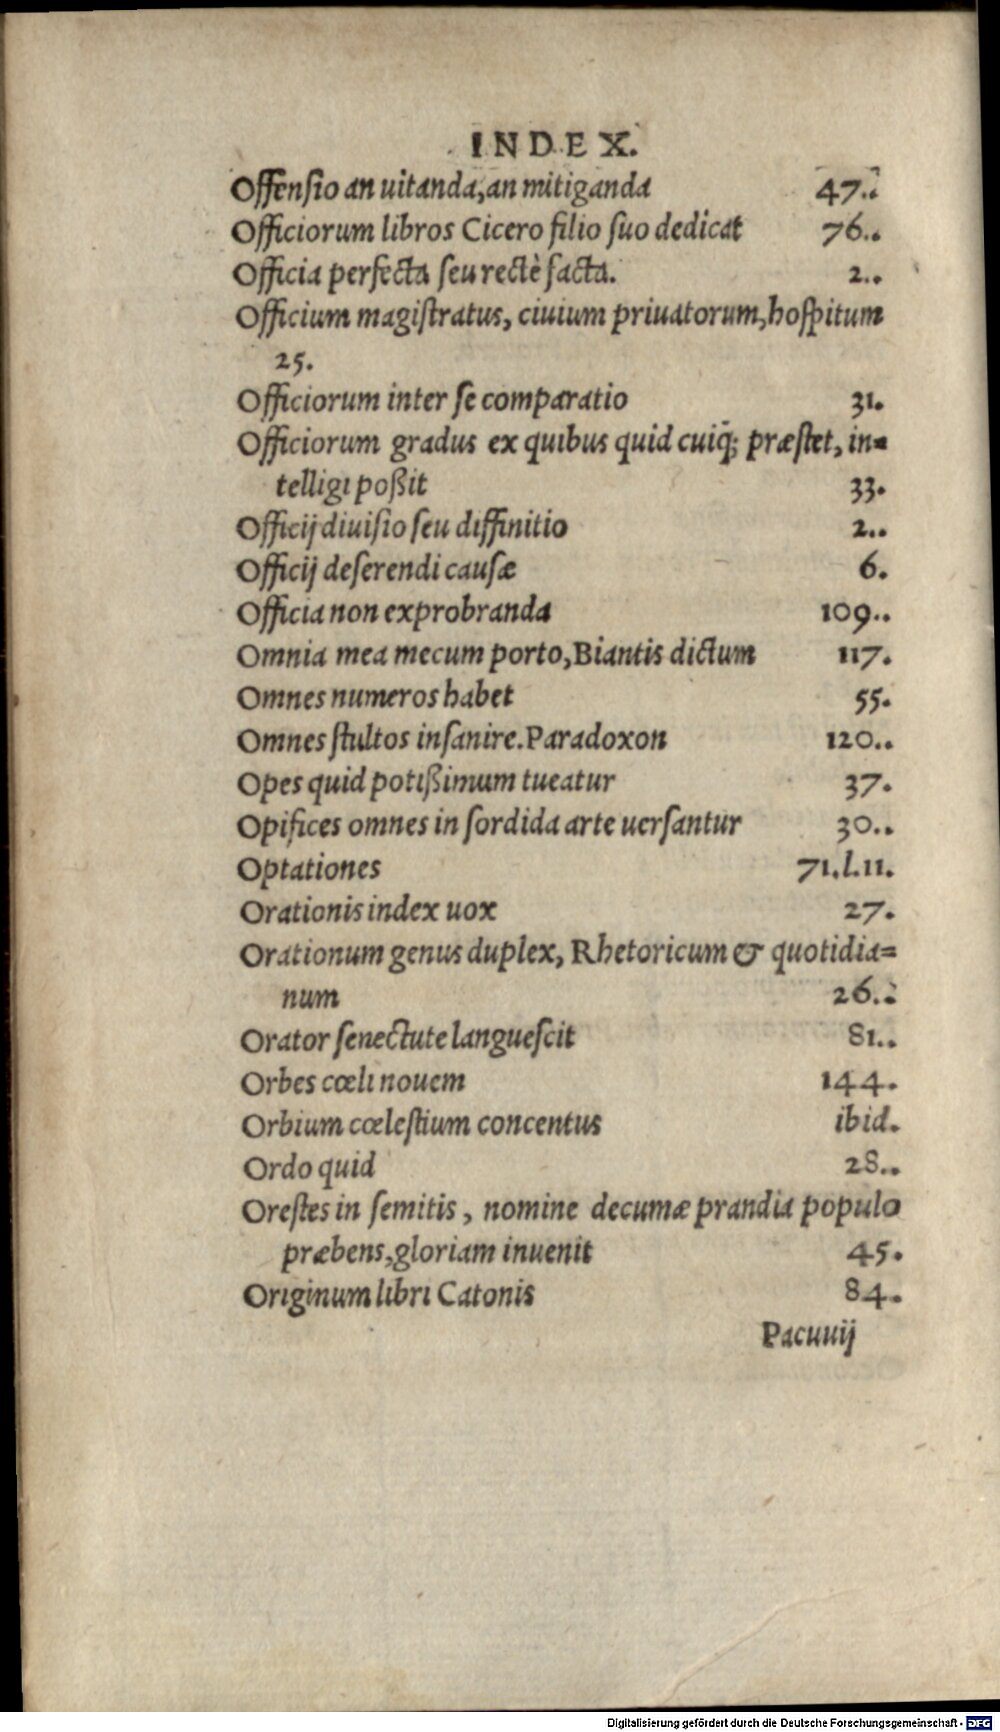 INDEX.
Offensio an uitanda, an mitiganda 47..
Officiorum libros Cicero filio suo dedicat 76..
Officia perfecta seu rectè facta. 2..
Officium magistratus, ciuium priuatorum, hospitum
25.
Officiorum inter se comparatio 31.
Officiorum gradus ex quibus quid cuiq̃; præstet, in=
telligi poßit 33.
Officij diuisio seu diffinitio 2..
Officij deserendi causæ 6.
Officia non exprobranda 109..
Omnia mea mecum porto, Biantis dictum 117.
Omnes numeros habet 55.
Omnes stultos insanire. Paradoxon 120..
Opes quid potißimum tueatur 37.
Opifices omnes in sordida arte uersantur 30..
Optationes 71.l.11.
Orationis index uox 27.
Orationum genus duplex, Rhetoricum & quotidia=
num 26..
Orator senectute languescit 81..
Orbes cœli nouem 144.
Orbium cœlestium concentus ibid.
Ordo quid 28..
Orestes in semitis, nomine decumæ prandia populo
præbens, gloriam inuenit 45.
Originum libri Catonis 84.
Pacuuij
Digitalisierung gefördert durch die Deutsche Forschungsgemeinschaft - DFG